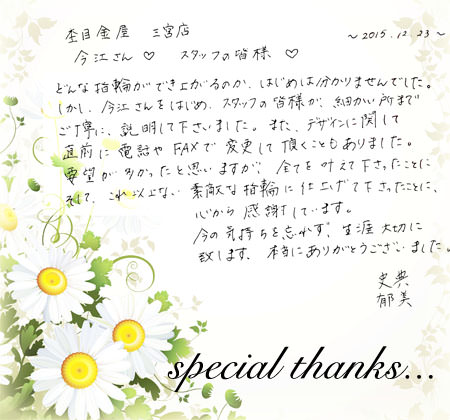 杢目金屋 三宮店
~2015.12.23~
今江さん♡ スタッフの皆様♡
どんな指輪ができ上がるのか、はじめは分かりませんでした。
しかし、今江さんをはじめ、スタッフの皆様が、細かい所まで
ご丁寧に、説明して下さいました。また、デザインに関して
直前に電話やFAXで変更して頂くこともありました。
要望が多かったと思いますが、全てを叶えて下さったことに
そして、これ以上ない素敵な指輪に仕上げて下さったことに、
心から感謝しています。
今の気持ちを忘れず、生涯大切に
致します。本当にありがとうございました。
史典
郁美
special thanks...